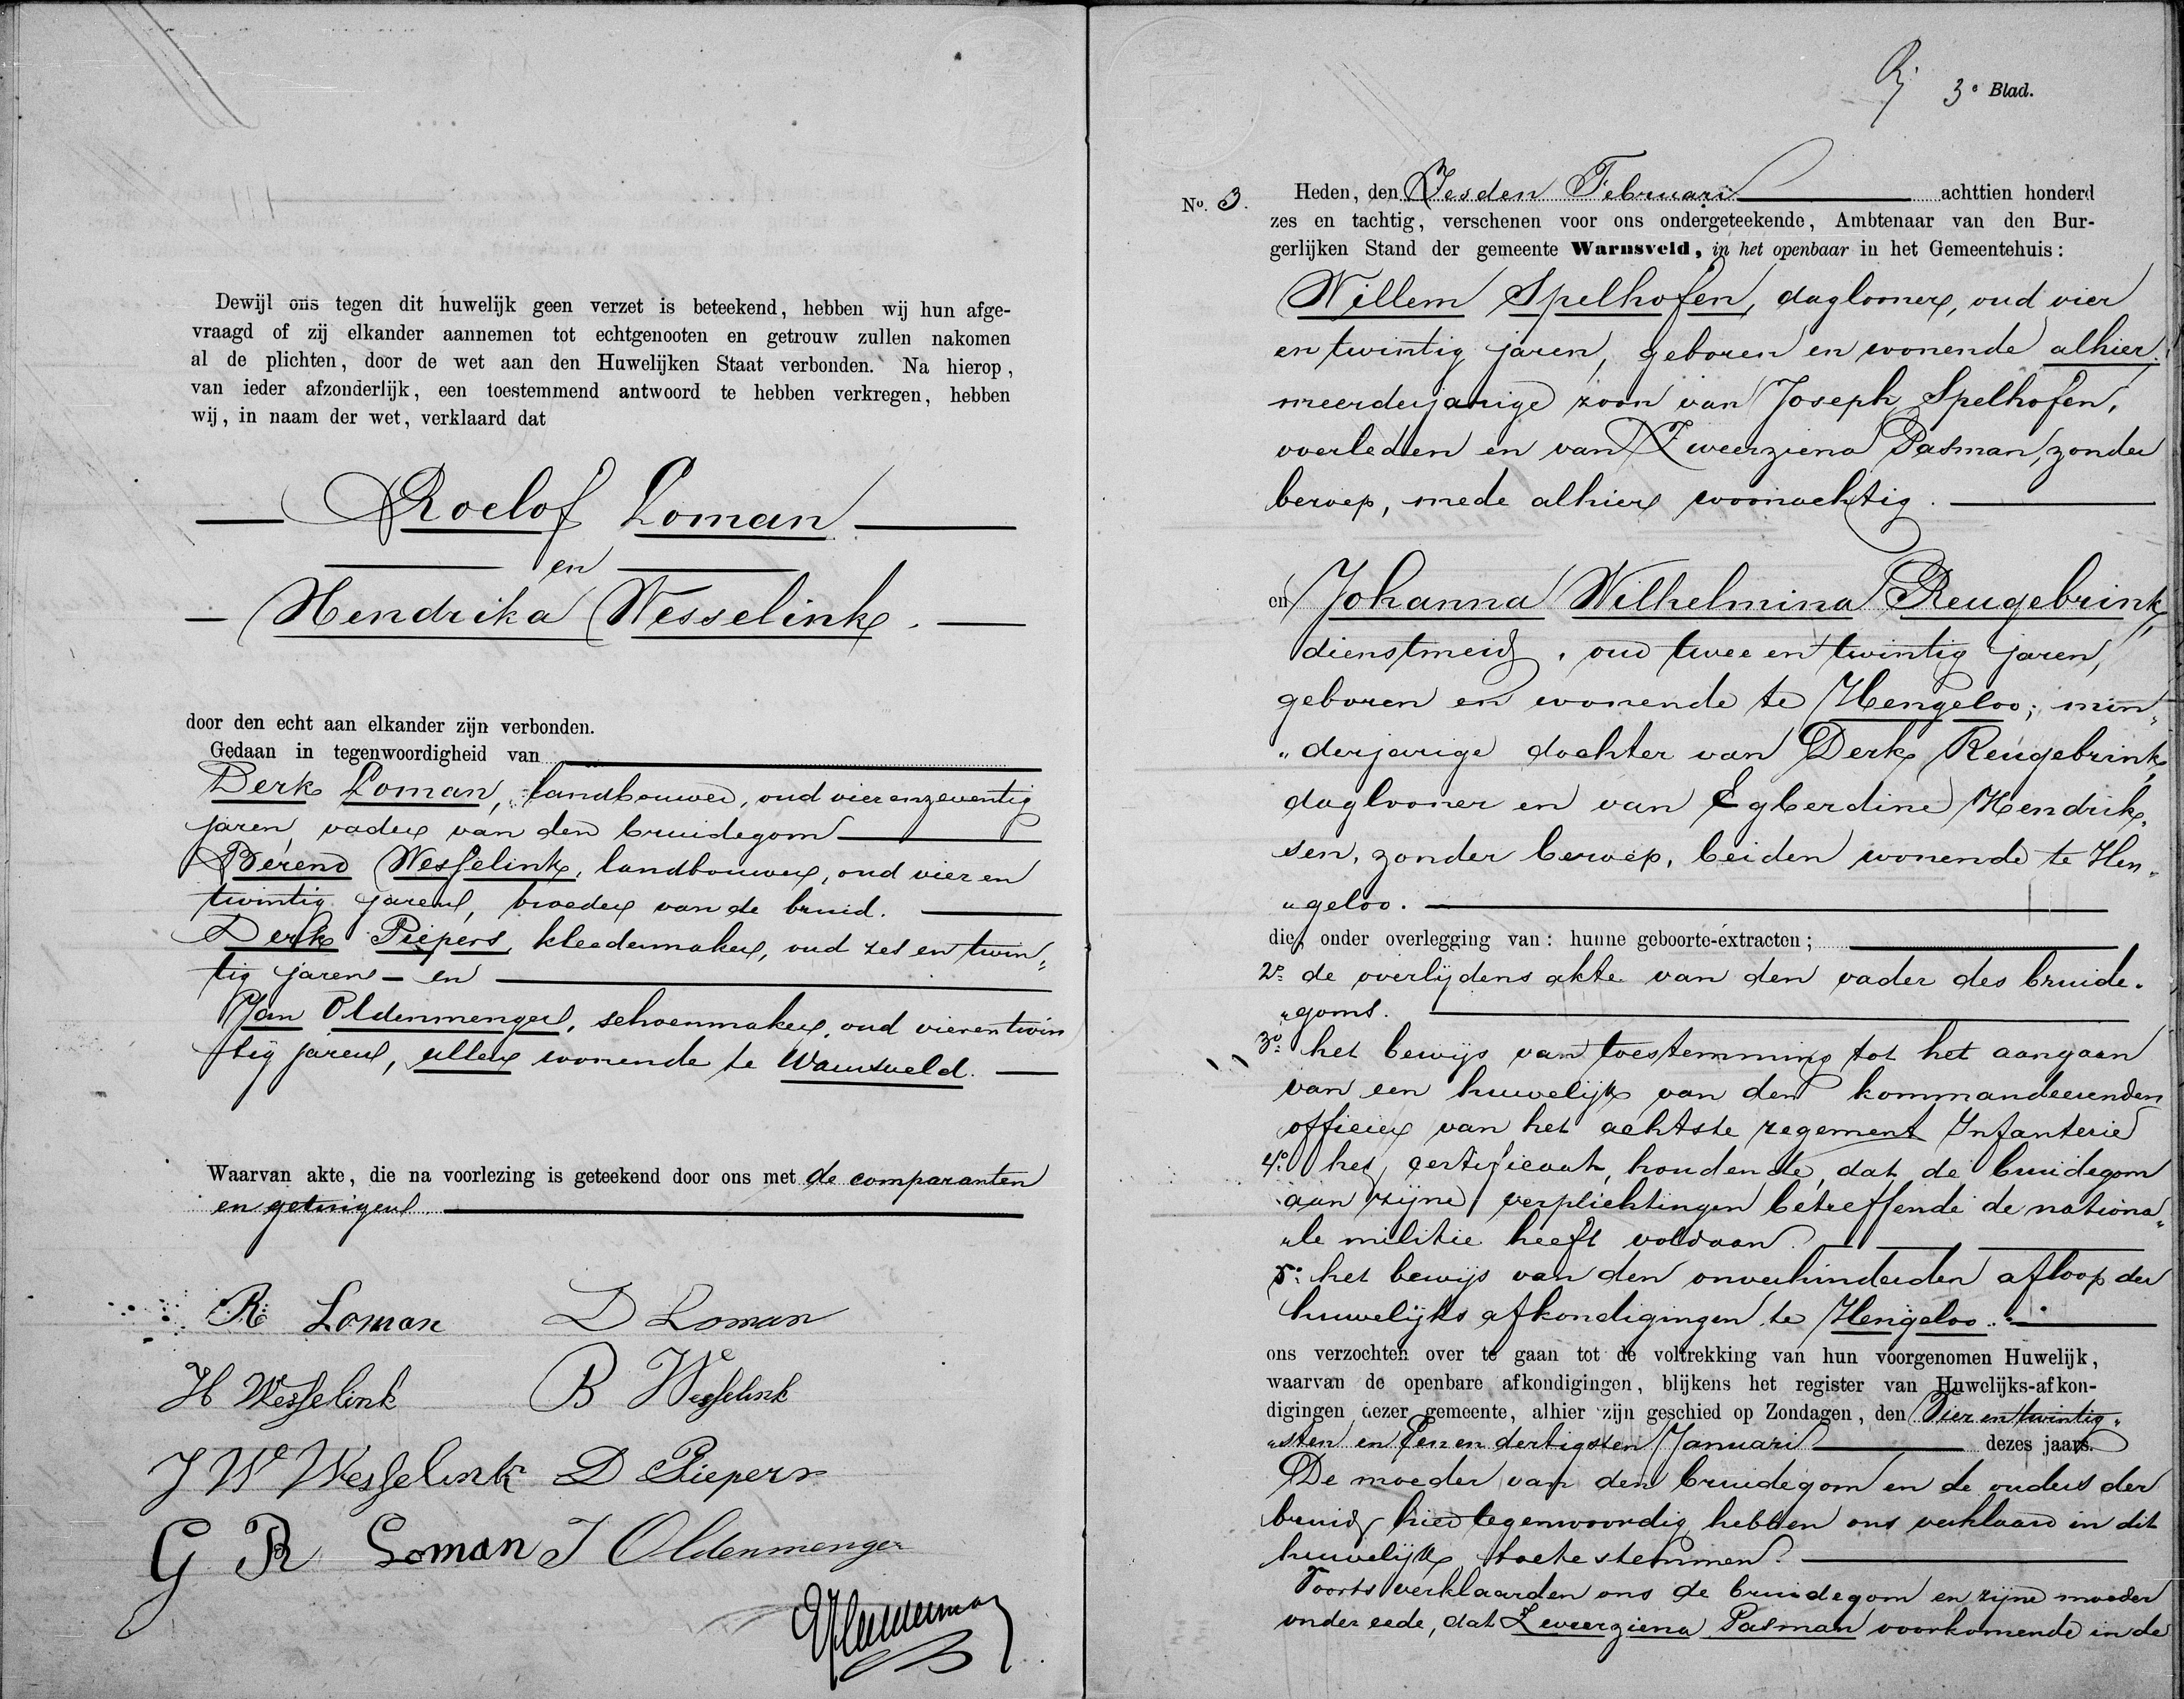 Dewijl ons tegen dit huwelijk geen verzet is beteekend, hebben wij hun afge-
vraagd of zij elkander aannemen tot echtgenooten en getrouw zullen nakomen
al de plichten, door de wet aan den Huwelijken Staat verbonden. Na hierop,
van ieder afzonderlijk, een toestemmend antwoord te hebben verkregen, hebben
wij, in naam der wet, verklaard dat
Roelof Loman
en
Hendrika Wesselink.
door den echt aan elkander zijn verbonden.
Gedaan in tegenwoordigheid van
Derk Loman, landbouwer, oud vier en zeventig
jaren, vader van den bruidegom
Berend Wesselink, landbouwer, oud vier en
twintig jaren, broeder van de bruid.
Derk Piepers, kleedermaker, oud zes en twin"
tig jaren - en
Jan Oldenmenger, schoenmaker, oud vier en twin
tig jaren, allen wonende te Warnsveld.
Waarvan akte, die na voorlezing is geteekend door ons met de comparanten
en getuigen
R Loman D Loman
H Wesselink B Wesselink
J W Wesselink D Piepers
G R Loman J Oldenmenger
3e Blad.
No. 3. Heden, den Zesden Februari achttien honderd
zes en tachtig, verschenen voor ons ondergeteekende, Ambtenaar van den Bur-
gerlijken Stand der gemeente Warnsveld, in het openbaar in het Gemeentehuis:
Willem Spelhofen, daglooner, oud vier
en twintig jaren, geboren en wonende alhier,
meerderjarige zoon van Joseph Spelhofen,
overleden en van Zweerziena Pasman, zonder
beroep, mede alhier woonachtig.
en Johanna Wilhelmina Reugebrink,
dienstmeid, oud twee en twintig jaren,
geboren en wonende te Hengeloo; min"
"derjarige dochter van Derk Reugebrink,
daglooner en van Egberdine Hendrik"
sen, zonder beroep, beiden wonende te Hen"
"geloo.
die, onder overlegging van: hunne geboorte-extracten;
2o. de overlijdens akte van den vader des bruide"
"goms.
3o. het bewijs van toestemming tot het aangaan
van een huwelijk van den kommandeerenden
officier van het achtste regement Infanterie
4o. het certificaat, houdende, dat de bruidegom
aan zijne verplichtingen betreffende de nationa"
"le militie heeft voldaan.
5o. het bewijs van den onverhinderden afloop der
huwelijks afkondigingen te Hengeloo.
ons verzochten over te gaan tot de voltrekking van hun voorgenomen Huwelijk,
waarvan de openbare afkondigingen, blijkens het register van Huwelijks-afkon-
digingen dezer gemeente, alhier zijn geschied op Zondagen, den Vier en twintig"
"sten en Een en dertigsten Januari dezes jaars.
De moeder van den bruidegom en de ouders der
bruid hier tegenwoordig hebben ons verklaard in dit
huwelijk toetestemmen.
Voorts verklaarden ons de bruidegom en zijne moeder
onder eede, dat Zweerziena Pasman voorkomende in de